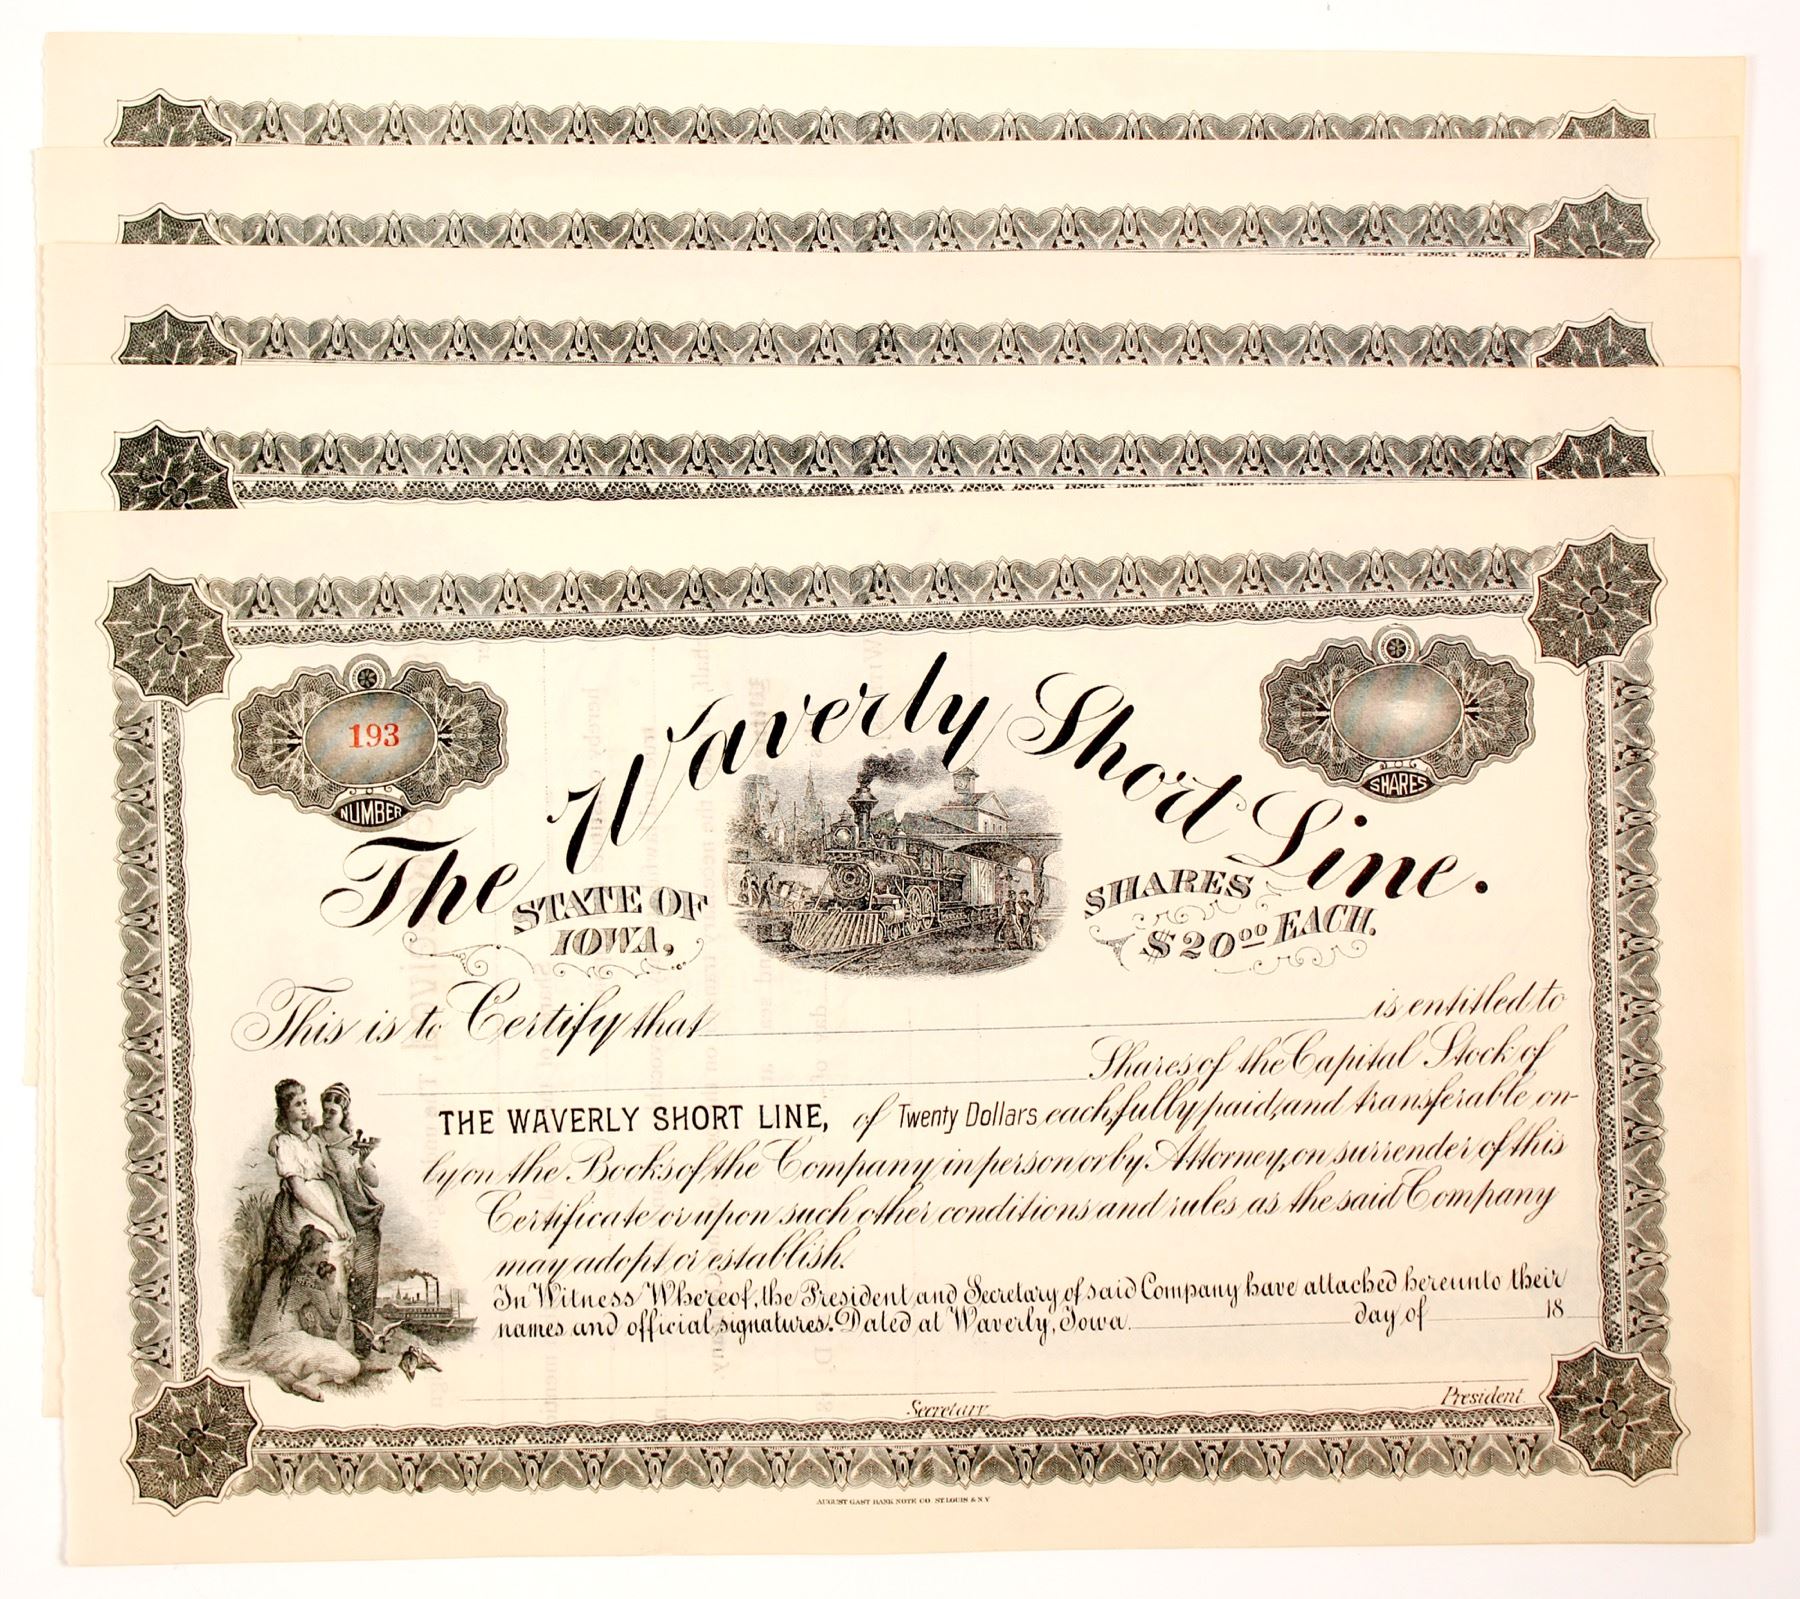 193
NUMBER
SHARES
The Waverly Short Line.
STATE OF
IOWA,
SHARES
$20.00 EACH.
This is to Certify that is entitled to
Shares of the Capital Stock of
THE WAVERLY SHORT LINE, of Twenty Dollars each, fully paid, and transferable on-
ly on the Books of the Company in person or by Attorney, on surrender of this
Certificate or upon such other conditions and rules as the said Company
may adopt or establish.
In Witness Whereof, the President and Secretary of said Company have attached hereunto their
names and official signatures. Dated at Waverly, Iowa. day of 18
Secretary President
AUGUST GAST BANK NOTE CO. ST. LOUIS & N.Y